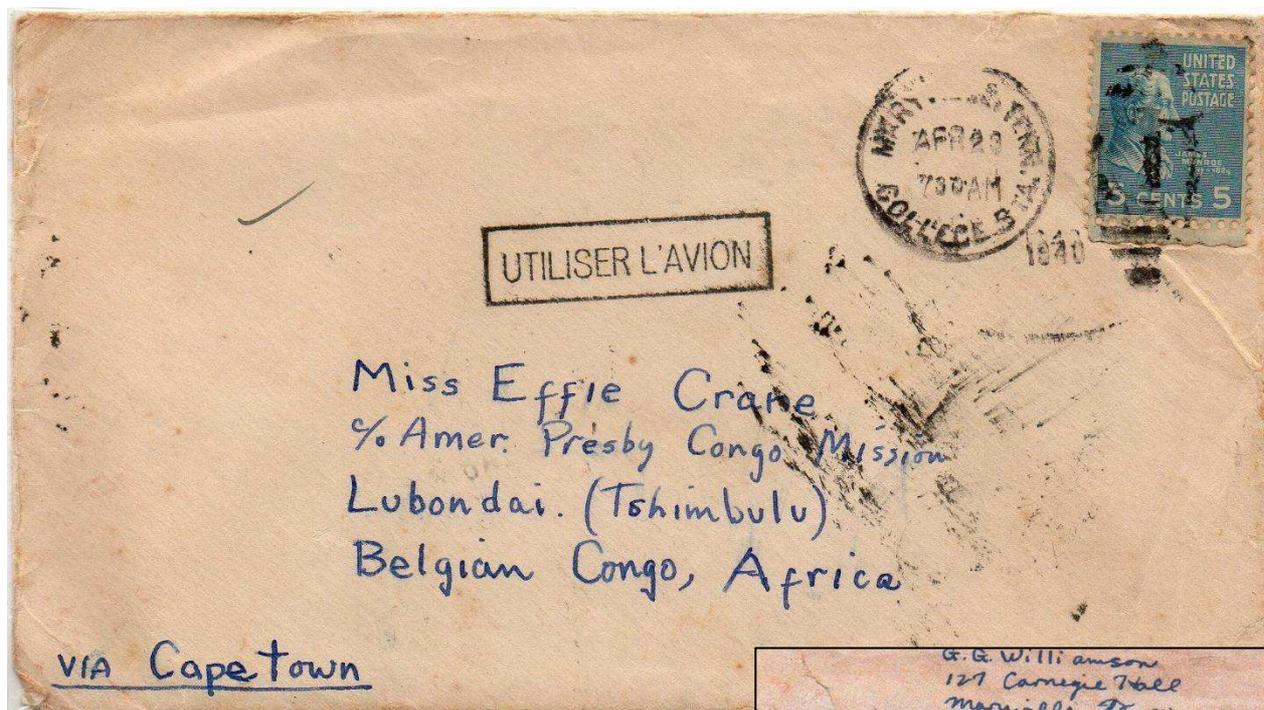 UNITED
STATES
POSTAGE
JAMES
MONROE
5 CENTS 5
TENN.
APR 29
AM
COLLEGE STA.
1940
UTILISER L'AVION
Miss Effie Crane
℅ Amer. Presby Congo Mission
Lubondai. (Tshimbulu)
Belgian Congo, Africa
VIA Capetown
G.G. Williamson
127 Carnegie Hall